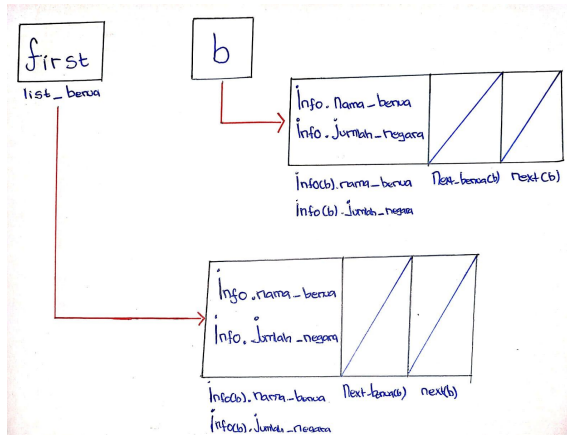 first
list_benua
b
Info.nama_benua
Info.jumlah_negara
info(b).nama_benua
info(b).jumlah_negara
Next_benua(b)
next(b)
Info.nama_benua
Info.jumlah_negara
Info(b).nama_benua
Info(b).jumlah_negara
Next_benua(b)
next(b)